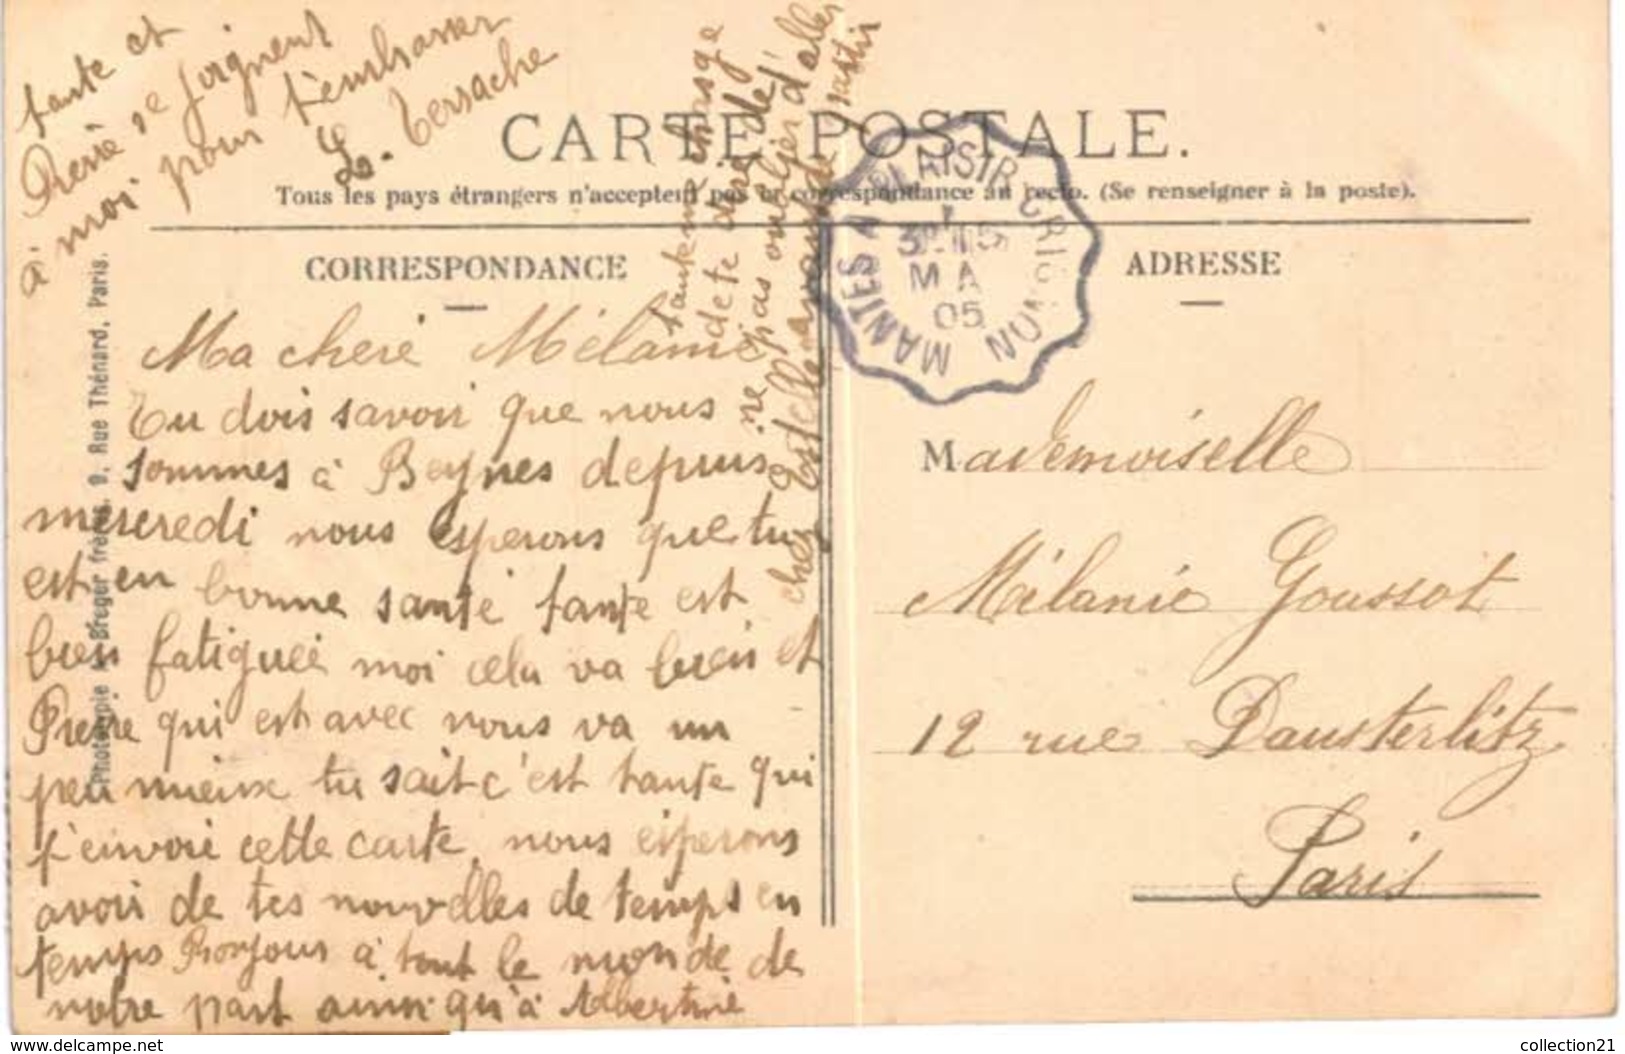 CARTE POSTALE.
Tous les pays étrangers n'acceptent pas la correspondance au recto. (Se renseigner à la poste).
CORRESPONDANCE
Ma cheré Mélanie
Tu dois savoir que nous
sommes à Beynes depuis
mercredi nous esperons que tu
est en bonne santé tante est
bien fatiguée moi cela va bien et
Pierre qui est avec nous va un
peu mieux tu sait c'est tante qui
t'envoie cette carte, nous esperons
avoir de tes nouvelles de temps en
temps Bonjour à tout le monde de
notre part ainsi qu'à Albertine
tante et
Pierre se joignent
à moi pour t'embrasser
L. Tersache
tante me charge
de te dire de
ne pas oublier d'aller
chez Estelle
matin
ADRESSE
Mademoiselle
Mélanie Goussot
12 rue Dausterlitz
Paris
PLAISIR GRIGNON
MANTES A
MA
05
Phototypie Bréger frères, 9, Rue Thénard, Paris.
www.delcampe.net
collection21